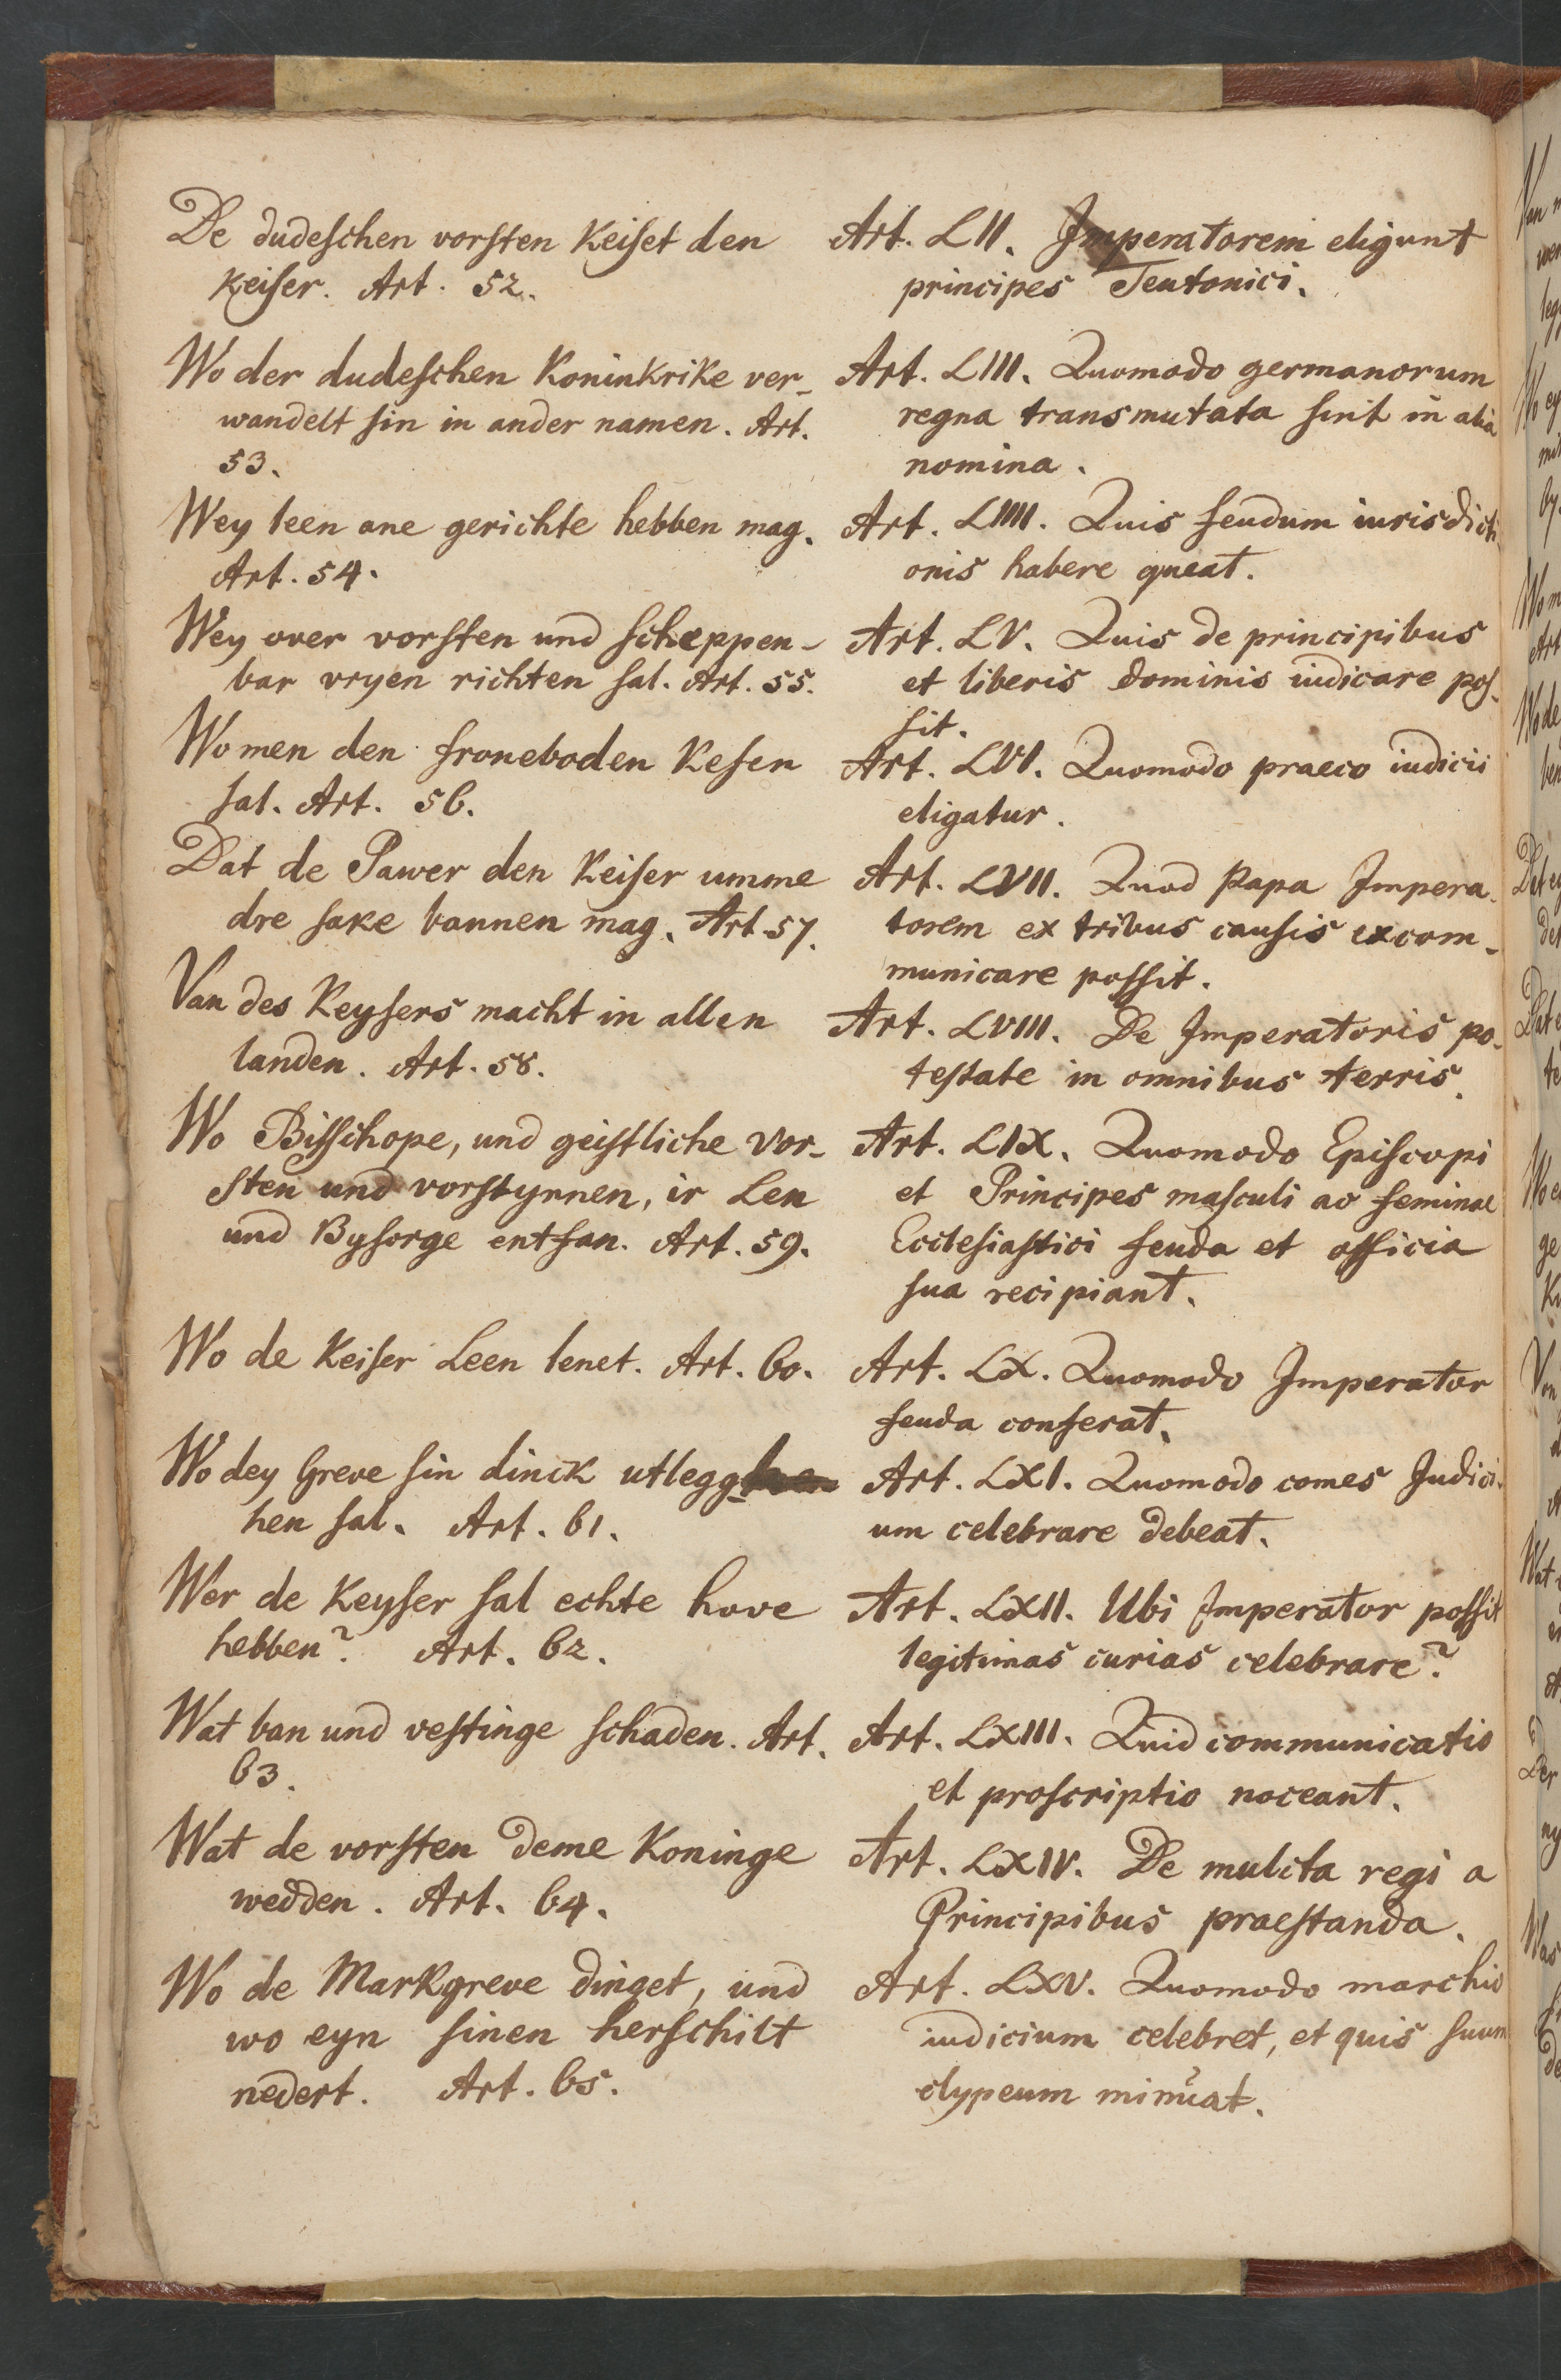 De dudeschen vorsten Keiset den
Keiser. Art. 52.
Wo der dudeschen Koninkrike ver-
wandelt sin in ander namen. Art.
53.
Wey leen ane gerichte hebben mag.
Art. 54.
Wey over vorsten und scheppen-
bar vryen richten sal. Art. 55.
Wo men den froneboden Kesen
sal. Art. 56.
Dat de Pawer den Keiser umme
dre sake bannen mag. Art. 57.
Van des Keysers macht in allen
landen. Art. 58.
Wo Bisschope, und geistliche Vor-
sten und vorstynnen, ir Len
und Bysorge entfan. Art. 59.
Wo de Keiser Leen lenet. Art. 60.
Wo dey Greve sin dinck utlegg-
hen sal. Art. 61.
Wer de Keyser sal echte hove
hebben? Art. 62.
Wat ban und vestinge schaden. Art.
63.
Wat de vorsten deme Koninge
wedden. Art. 64.
Wo de Markgreve dinget, und
wo eyn sinen herschilt
nedert. Art. 65.
Art. LII. Imperatorem eligunt
principes Teutonici.
Art. LIII. Quomodo germanorum
regna transmutata sint in alia
nomina.
Art. LIIII. Quis feudum iurisdicti-
onis habere queat.
Art. LV. Quis de principibus
et liberis dominis iudicare pos-
sit.
Art. LVI. Quomodo praeco iudicii
eligatur.
Art. LVII. Quod Papa Impera-
torem ex tribus causis excom-
municare possit.
Art. LVIII. De Imperatoris po-
testate in omnibus terris.
Art. LIX. Quomodo Episcopi
et Principes masculi ac feminae
Ecclesiastici feuda et officia
sua recipiant.
Art. LX. Quomodo Imperator
feuda conferat.
Art. LXI. Quomodo comes Judici-
um celebrare debeat.
Art. LXII. Ubi Imperator possit
legitimas curias celebrare?
Art. LXIII. Quid communicatio
et proscriptio noceant.
Art. LXIV. De mulcta regi a
Principibus praestanda.
Art. LXV. Quomodo marchio
iudicium celebret, et quis suum
clypeum minuat.